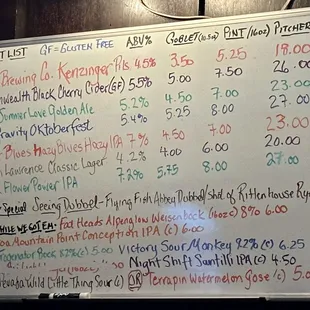 T LIST GF=GLUTEN FREE ABV% GOBLET(10.5oz) PINT/(16oz) PITCHER
Brewing Co. Kenzinger Pils 4.5% 3.50 5.25 18.00
wealth Black Cherry Cider(GF) 5.5% 5.00 7.50 26.00
Summer Love Golden Ale 5.2% 4.50 7.00 23.00
ravity OKtoberfest 5.4% 5.25 8.00 27.00
Blues Hazy Blues Hazy IPA 7% 4.50 7.00 23.00
Lawrence Classic Lager 4.2% 4.00 6.00 20.00
Flower Power IPA 7.2% 5.75 8.00 27.00
Special Seeing Dubbel - Flying Fish Abbey Dubbel/Shot of Rittenhouse Ry
WHILE WE GOT EM: Fat Heads Alpenglow Weisenbock (16oz C) 8% 6.00
oa Mountain Point Conception IPA (c) 6.00
rogenator Bock 8.2% (c) 5.00 Victory Sour Monkey 9.2% (c) 6.25
so Night Shift Santilli IPA (c) 4.50
Wild Little Thing Sour (c) OR Terrapin Watermelon Gose (c) 5.0